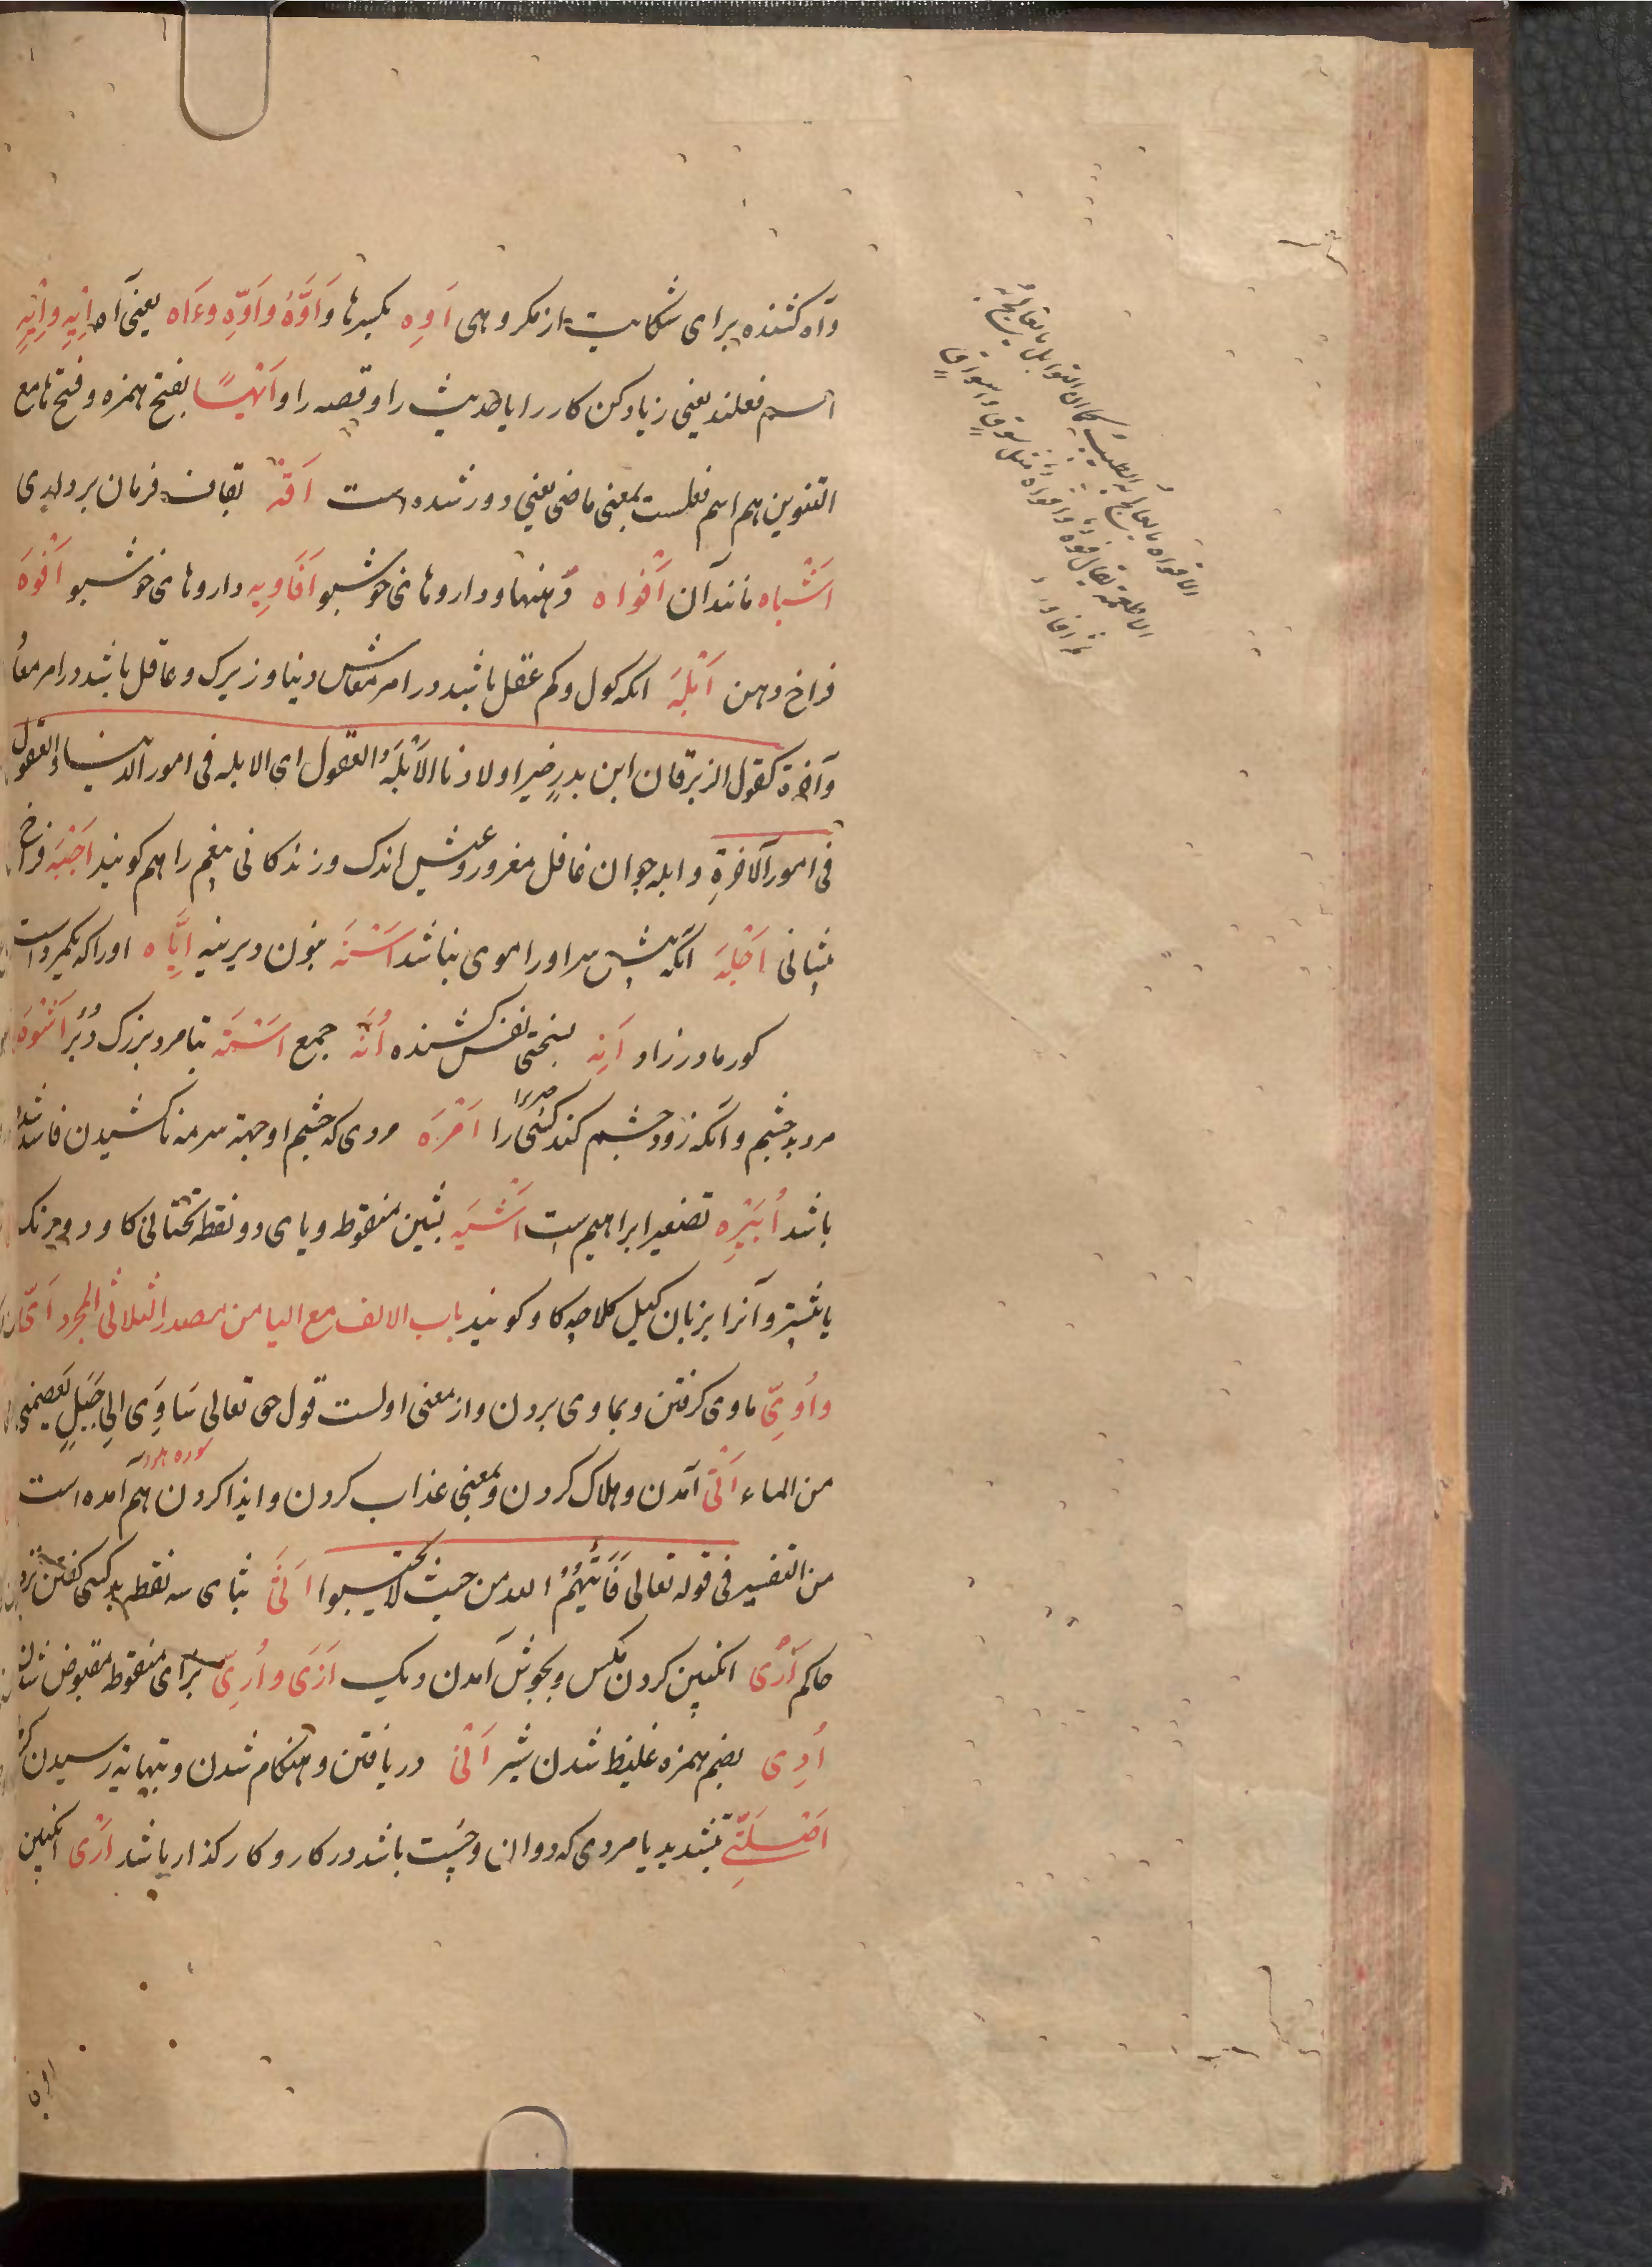 وآه کشنده برای شکایت از مکروهی اَوِه بکسرها وَاَوَّهْ وَاَوِّهِ وءَاه یعنی آه اِیْهِ وَاِیْهٍ
اسم فعلند یعنی زیاد کن کار را یا حدیث را و قصه را و اَیْهًا بفتح همزه و فتح ها مع
التنوین هم اسم فعلست بمعنی ماضی یعنی دور شده است اَقَهْ بقاف فرمان برداری
اَشْبَاه مانند آن اَفْوَاه دهنها و داروهای خوشبو اَفَاوِیه داروهای خوشبو اَفْوَه
فراخ دهن اَبْلَه انکه کول و کم عقل باشد در امر معاش دنیا و زیرک و عاقل باشد در امر معاد
وآخرة کقول الزبرقان ابن بدرٍ خیر اولادنا الاَبْلَهُ العقول ای الابله فی امور الدنیا والعقول
فی امور الآخرةِ و ابله جوان غافل مغرور و عیش اندک و زندکانی بیغم را هم کویند اَجْبَه فراخ
پیشانی اَجْلَه انکه پیش سر اورا موی نباشد اَسْنَه بنون دیرینه اِیَّاه اورا اکه
کور مادرزاد اَنِه بسختی نفس کشنده اُنَّه جمع اَسْتَه بتا مرد بزرک دُبُر اَشْوَه
مرد بدچشم و انکه زود چشم کند کسی را اَمْرَه مردی که چشم او جهة سرمه ناکشیدن فاسد شده
باشد اُبَیْرِه تصغیر ابراهیم است اَشْیَه بشین منقوط و یای دو نقطه تحتانی کاو دو رنک
یا بیشتر و آنرا بزبان کیل کلاچه کاو کویند باب الالف مع الیا من مصدر الثلاثی المجرد اَیّ
واُوِیّ ماوی کرفتن و بماوی بردن و از معنی اولست قول حق تعالی سَاوِی اِلی جَبَلٍ یَعصِمنی
سوره هود
من الماء اَتْی آمدن و هلاک کردن و بمعنی عذاب کردن و ایذا کردن هم آمده است
من التفسیر فی قوله تعالی فَاَتَیهُمُ الله من حیث لم یحتسبوا اَثْی بثای سه نقطه بد کسی کفتن نزد
حاکم اَرْی انکبین کردن مکس و بجوش آمدن دیک اَزْی و اُزِیّ برای منقوطه مقبوض شدن
اُدِی بضم همزه غلیظ شدن شیر اَنْی دریافتن و هنکام شدن و بنهایة رسیدن
اَصْلَتِیّ بتشدید یا مردی که دوان و چست باشد در کار و کارکذار باشد اَرْی انکبین
الافواه ما یعالج به الطیب کما ان التوابل ما یعالج به
الاطعمة یقال فوه وافواه مثل سوق واسواق
ثم افاویه